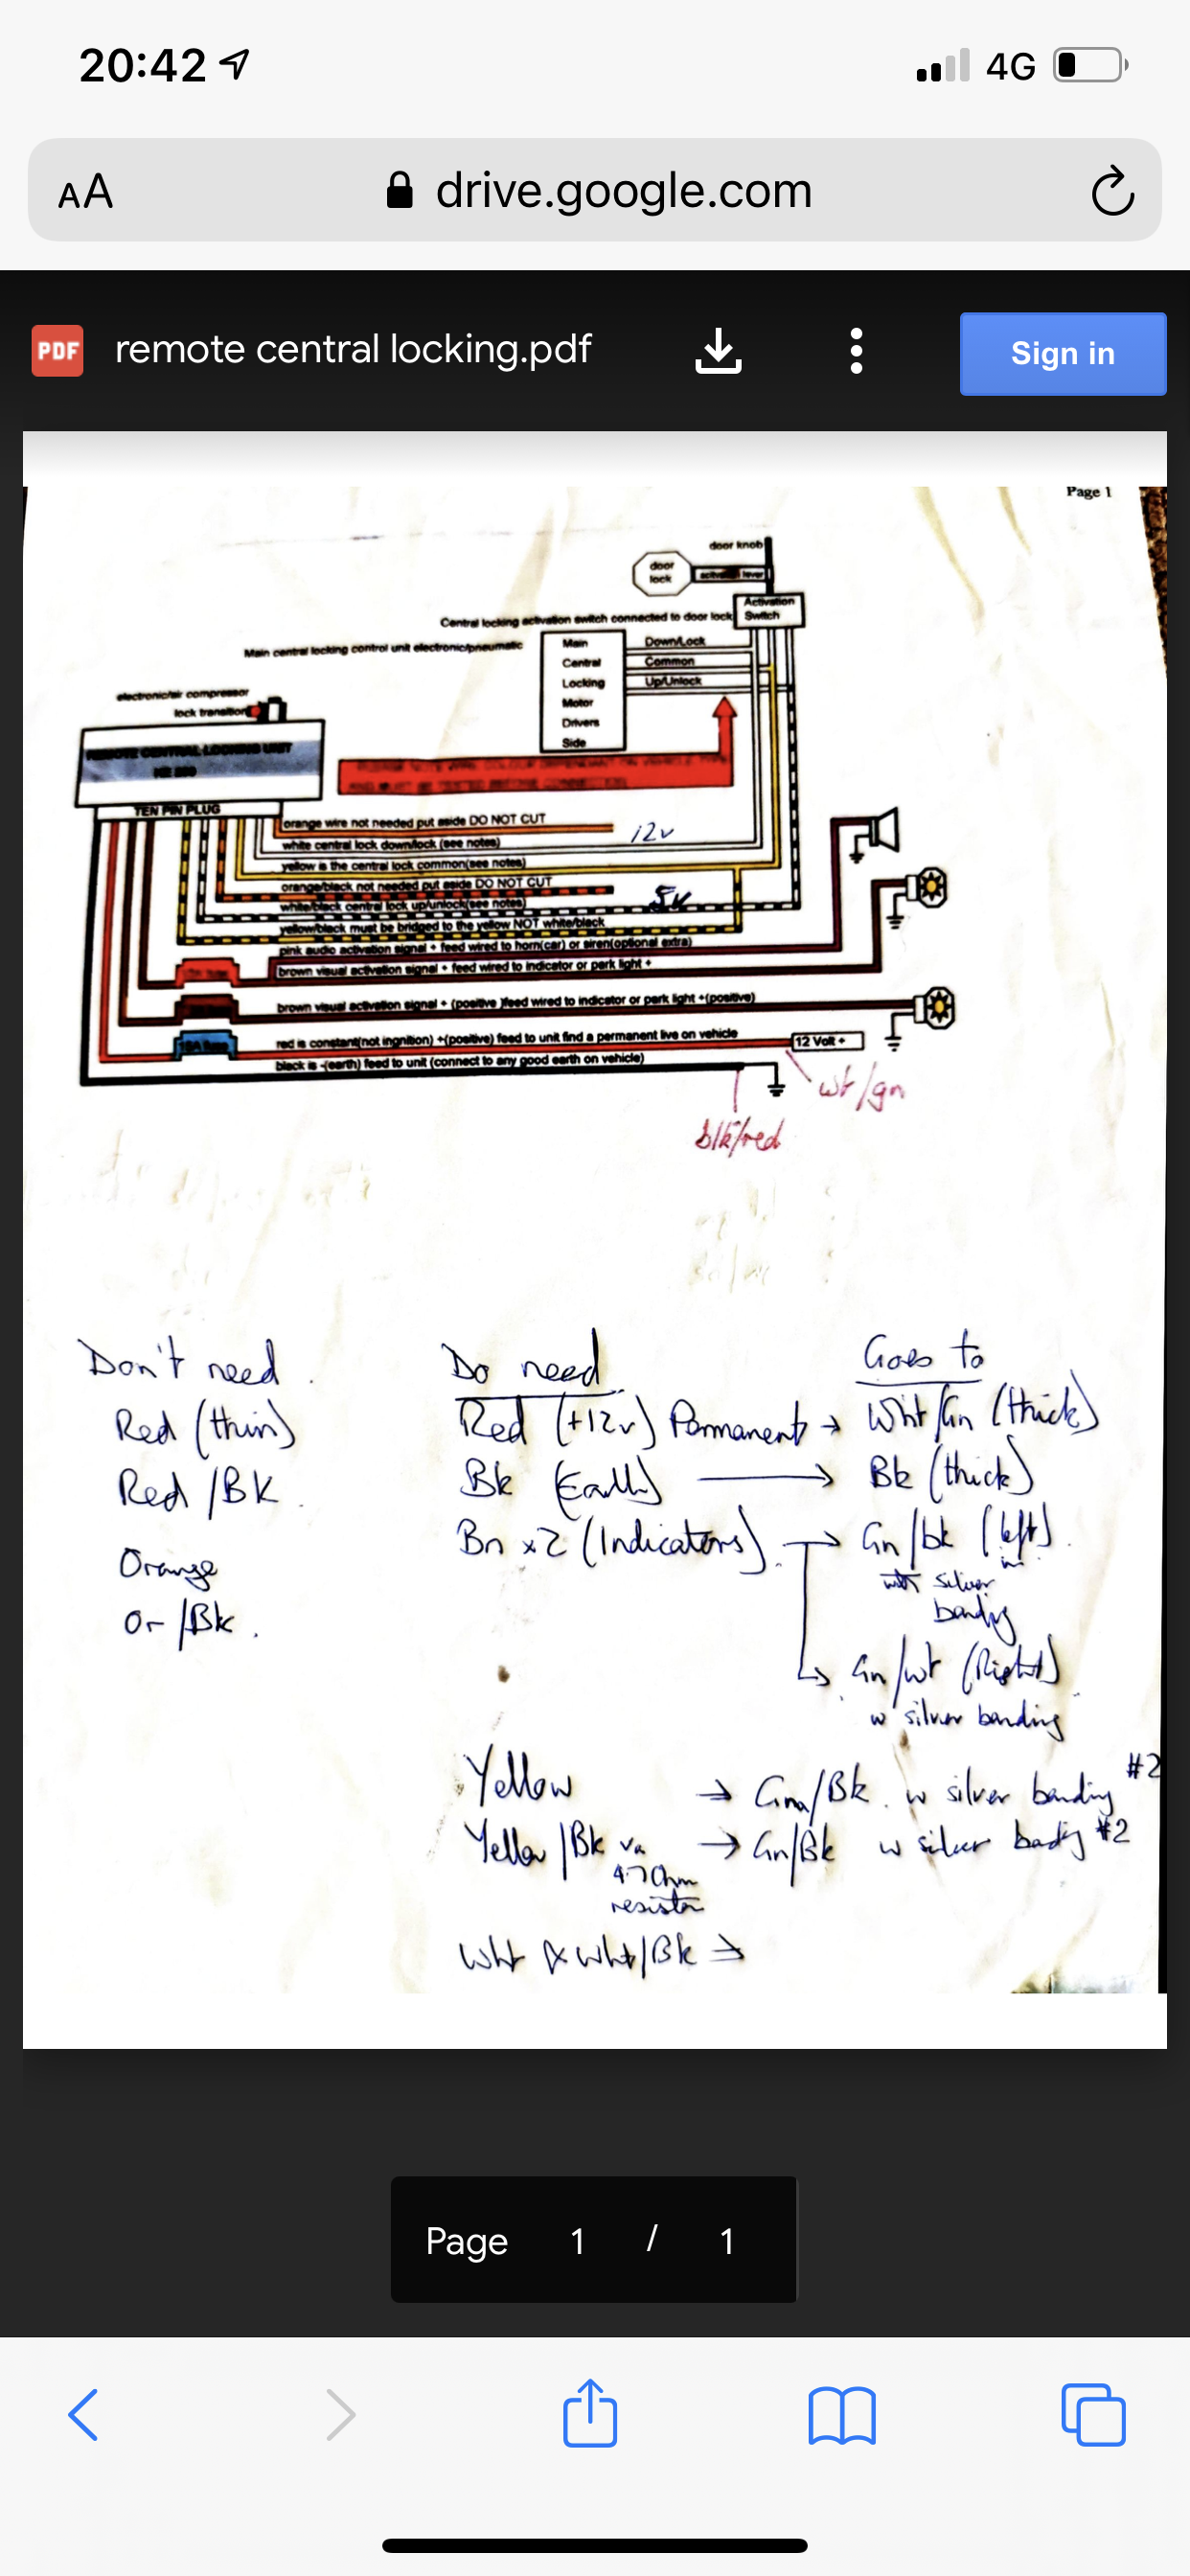 20:42
4G
AA
drive.google.com
PDF
remote central locking.pdf
Sign in
Page 1
door knob
door
lock
activation lever
Activation
Switch
Central locking activation switch connected to door lock
Main central locking control unit electronic/pneumatic
Main
Central
Locking
Motor
Drivers
Side
Down/Lock
Common
Up/Unlock
electronic/air compressor
lock transition
REMOTE CENTRAL LOCKING UNIT
TEN PIN PLUG
orange wire not needed put aside DO NOT CUT
12v
white central lock down/lock (see notes)
yellow is the central lock common(see notes)
orange/black not needed put aside DO NOT CUT
5v
white/black central lock up/unlock(see notes)
yellow/black must be bridged to the yellow NOT white/black
pink audio activation signal + feed wired to horn(car) or siren(optional extra)
brown visual activation signal + feed wired to indicator or park light +
brown visual activation signal + (positive )feed wired to indicator or park light +(positive)
red is constant(not ingnition) +(positive) feed to unit find a permanent live on vehicle
12 Volt +
black is -(earth) feed to unit (connect to any good earth on vehicle)
wt/gn
blk/red
Don't need
Red (thin)
Red /BK
Orange
Or /Bk.
Do need
Goes to
Red (+12v) Permanent → Wht/Gn (thick)
Bk (Earth) → Bk (thick)
Bn x2 (Indicators) → Gn/bk (left)
with silver
banding
Gn/wt (Right)
w silver banding
Yellow → /Bk. w silver banding #2
Yellow /Bk via → Gn/Bk w silver #2
Ohm
resistor
Wht & wht/Bk →
Page 1 / 1